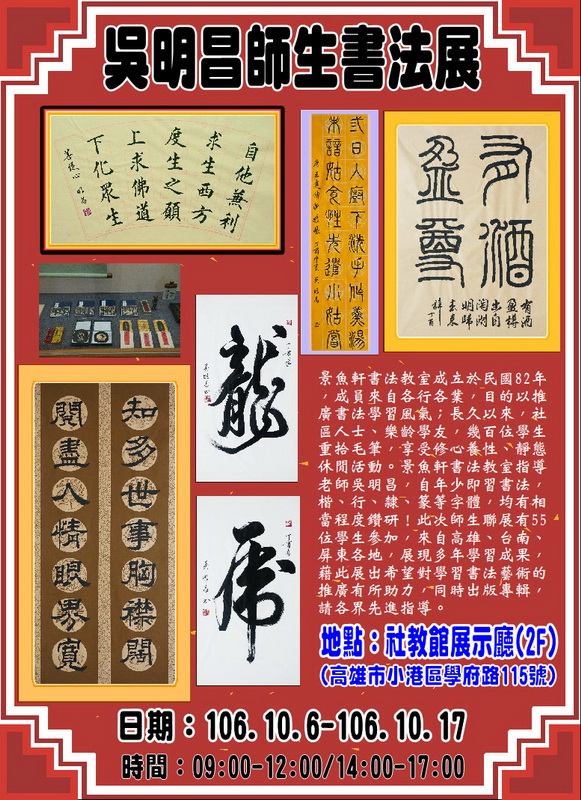 吳明昌師生書法展
自他兼利
求生西方
度生之願
上求佛道
下化眾生
菩提心
弎日入廚下洗手作羹湯
未諳姑食性先遣小姑嘗
有酒
盈尊
有酒
盈樽
出自
陶淵
明歸
去來
辭丁酉
龍
虎
知多世事胸襟闊
閱盡人情眼界寬
景魚軒書法教室成立於民國82年
，成員來自各行各業，目的以推
廣書法學習風氣；長久以來，社
區人士、樂齡學友、幾百位學生
重拾毛筆享受修心養性，靜態
休閒活動，景魚軒書法教室指導
老師吳明昌自年少即學習書法，
楷、行、隸、篆等字體，均有相
當程度鑽研！此次師生聯展有55
位學生參加，來自高雄、台南、
屏東各地，展現多年學習成果，
藉此展出希望對學習書法藝術的
推廣有所助力，同時出版專輯，
請各界先進指導。
地點：社教館展示廳(2F)
(高雄市小港區學府路115號)
日期：106.10.6-106.10.17
時間：09:00-12:00/14:00-17:00